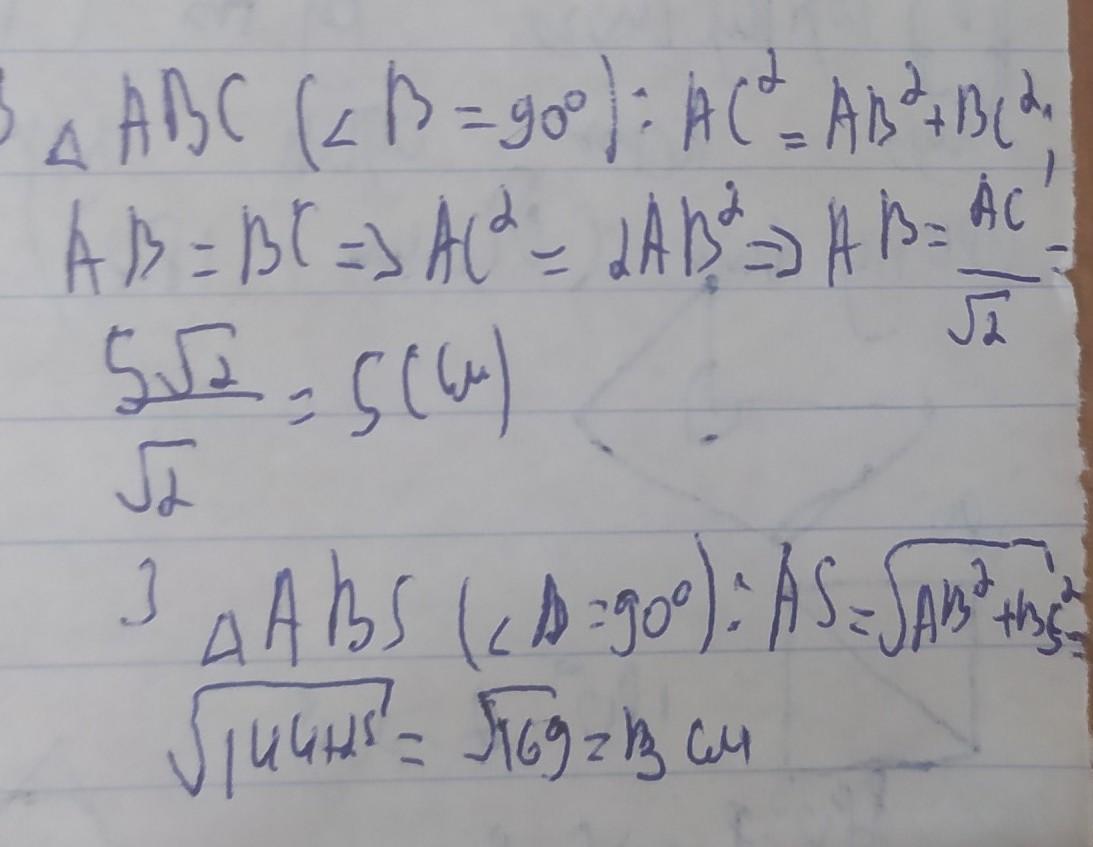 З △ ABC (∠B = 90°): AC² = AB² + BC²;
AB = BC => AC² = 2AB² => AB = AC/√2 =
5√2/√2 = 5 (см)
З △ ABS (∠B = 90°): AS = √(AB² + BS²) =
√(144+25) = √169 = 13 см